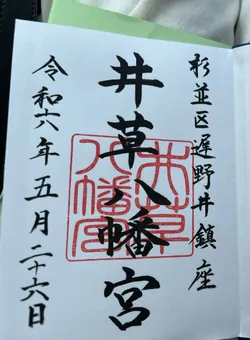 杉並区遅野井鎮座
井草八幡宮
令和六年五月二十六日
井草八幡宮